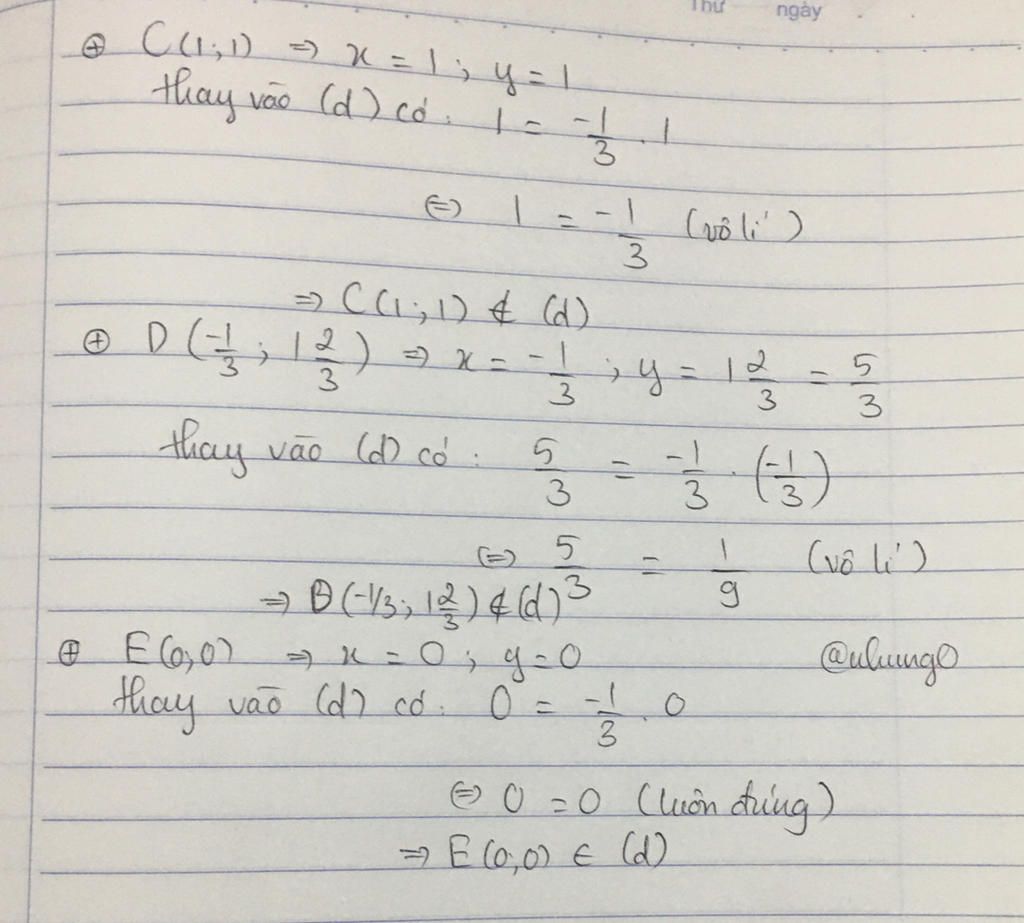 Thứ ngày
⊕ C(1;1) ⇒ x = 1; y = 1
thay vào (d) có: 1 = -1/3 . 1
⇔ 1 = -1/3 (vô lí)
⇒ C(1;1) ∉ (d)
⊕ D(-1/3; 1 2/3) ⇒ x = -1/3; y = 1 2/3 = 5/3
thay vào (d) có: 5/3 = -1/3 . (-1/3)
⇔ 5/3 = 1/9 (vô lí)
⇒ D(-1/3; 1 2/3) ∉ (d)
⊕ E(0;0) ⇒ x = 0; y = 0
thay vào (d) có: 0 = -1/3 . 0
⇔ 0 = 0 (luôn đúng)
⇒ E(0;0) ∈ (d)